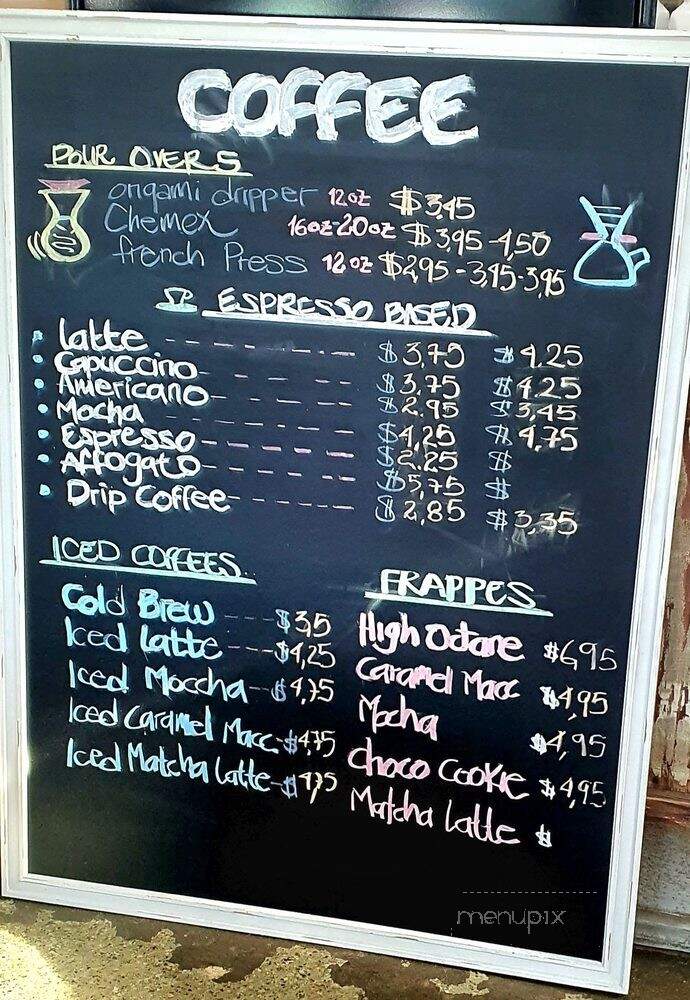 COFFEE
POUR OVERS
origami dripper 12oz $3,45
Chemex 16oz-20oz $3,95-4,50
french Press 12oz $2,95-3,45-3,95
ESPRESSO BASED
Latte $3,75 $4,25
Capuccino $3,75 $4,25
Americano $2,95 $3,45
Mocha $4,25 $4,75
Espresso $2,25 $
Affogato $5,75 $
Drip Coffee $2,85 $3,35
ICED COFFEES
Cold Brew $3,5
Iced Latte $4,25
Iced Moccha $4,75
Iced Caramel Macc $4,75
Iced Matcha Latte $4,75
FRAPPES
High Octane $6,95
Caramel Macc $4,95
Mocha $4,95
Choco Cookie $4,95
Matcha Latte $
menupix